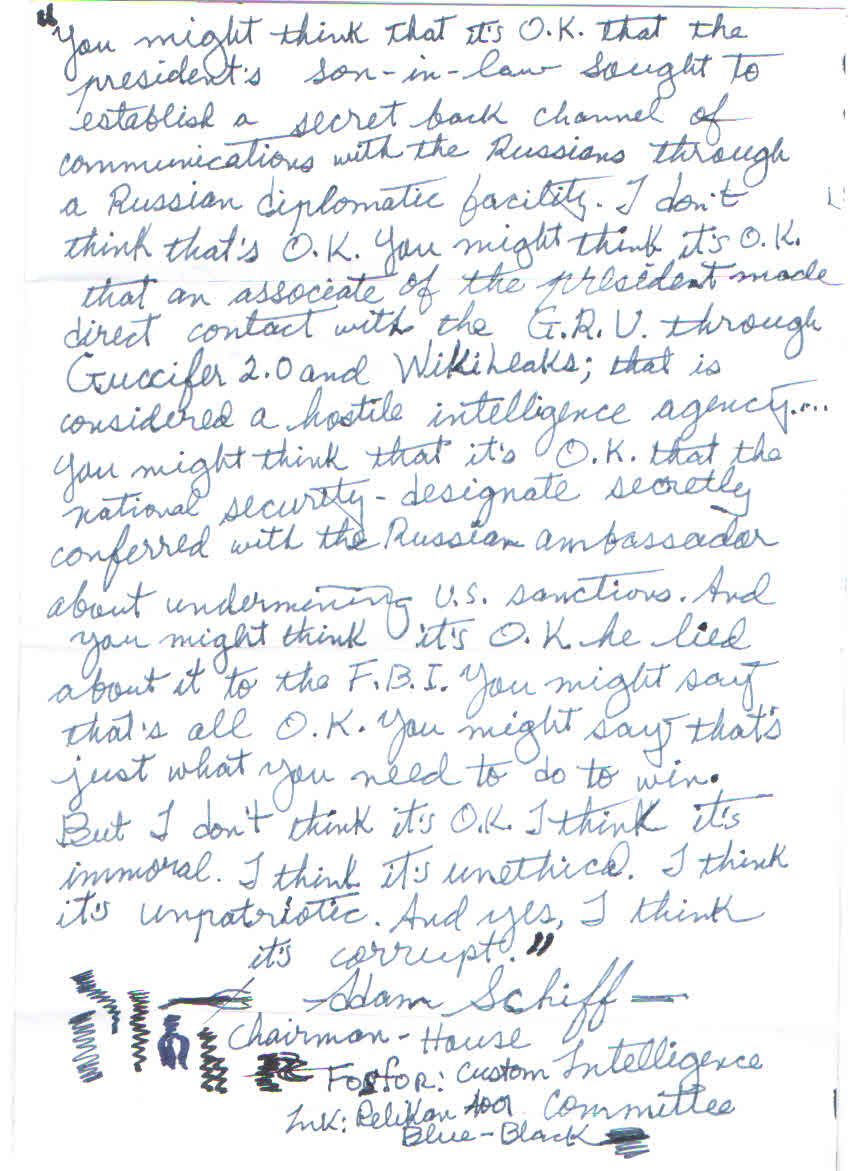 "You might think that it's O.K. that the
president's son-in-law sought to
establish a secret back channel of
communications with the Russians through
a Russian diplomatic facility. I don't
think that's O.K. You might think it's O.K.
that an associate of the president made
direct contact with the G.R.U. through
Guccifer 2.0 and WikiLeaks; that is
considered a hostile intelligence agency....
You might think that it's O.K. that the
national security-designate secretly
conferred with the Russian ambassador
about undermining U.S. sanctions. And
you might think it's O.K. he lied
about it to the F.B.I. You might say
that's all O.K. You might say that's
just what you need to do to win.
But I don't think it's O.K. I think it's
immoral. I think it's unethical. I think
it's unpatriotic. And yes, I think
it's corrupt."
Adam Schiff —
Chairman - House
Intelligence
Committee
Fosfor: Custom
Ink: Pelikan 4001
Blue-Black